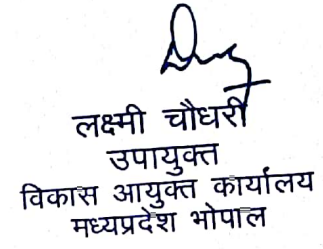 लक्ष्मी चौधरी
उपायुक्त
विकास आयुक्त कार्यालय
मध्यप्रदेश भोपाल